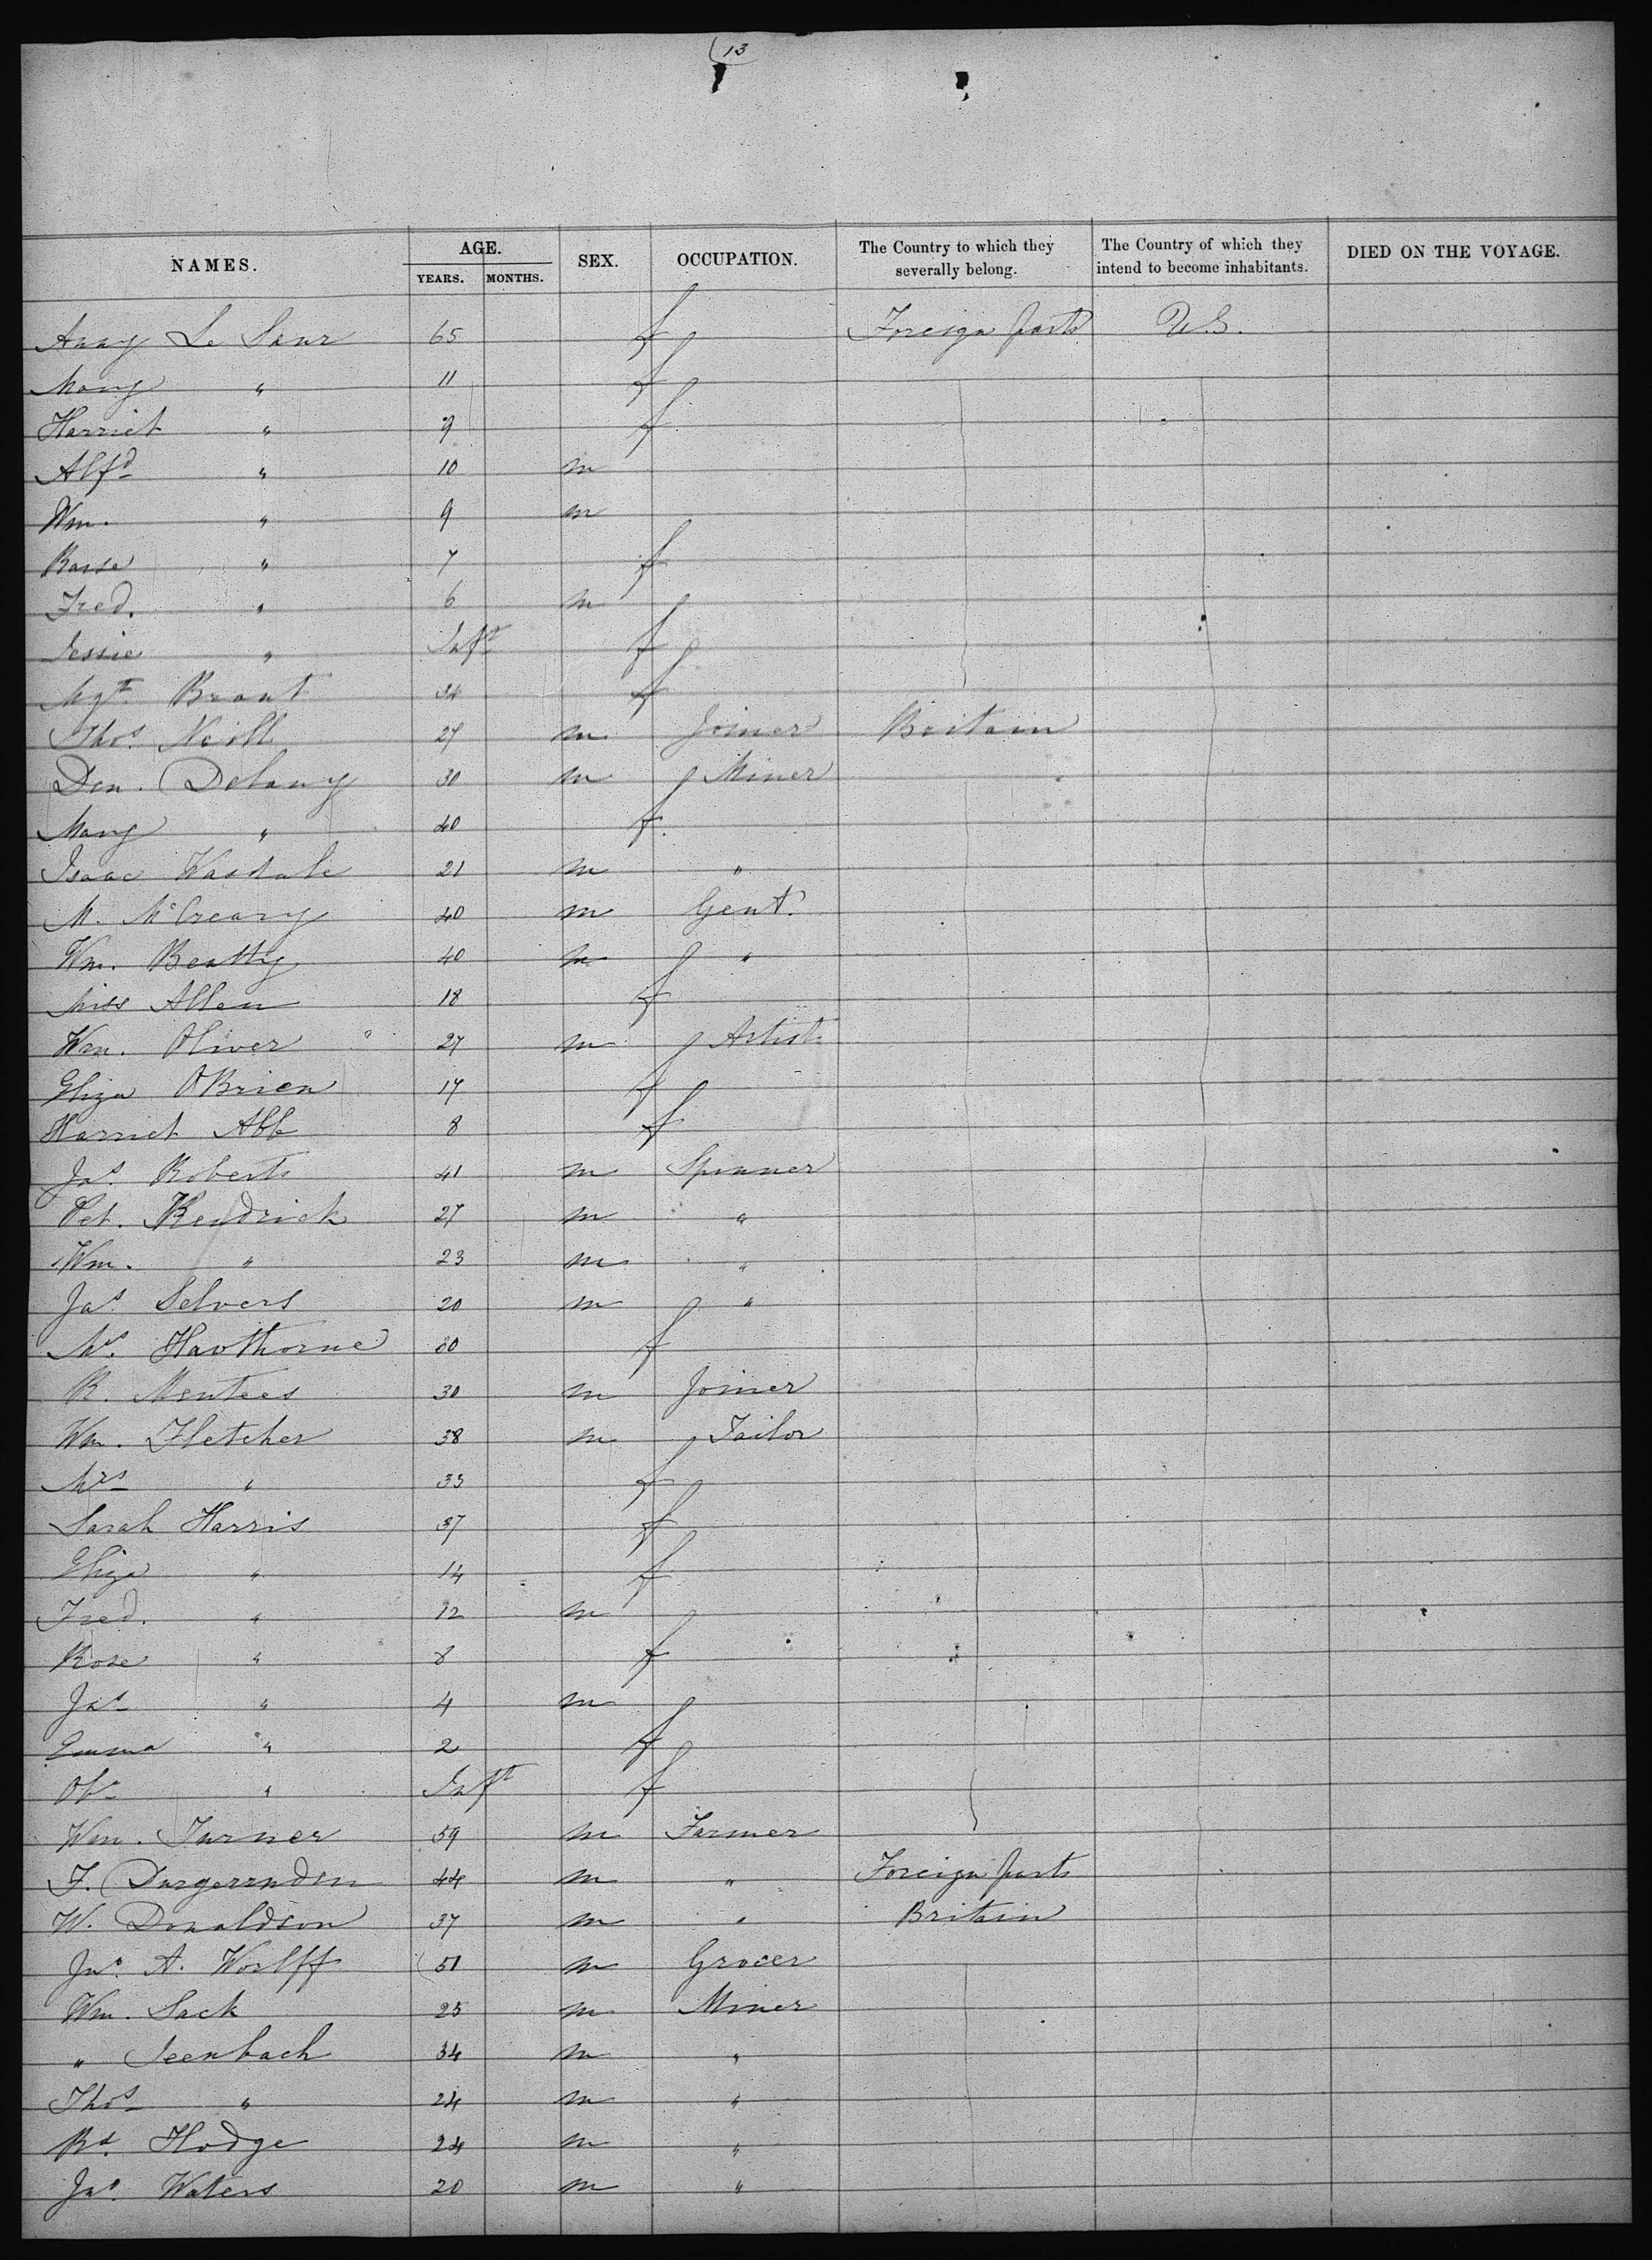 13
NAMES. AGE. YEARS. MONTHS. SEX. OCCUPATION. The Country to which they severally belong. The Country of which they intend to become inhabitants. DIED ON THE VOYAGE.
Le Saur 65 f Foreign parts U.S.
Mary " 11 f
Harriet " 9 f
Alfd " 10 m
Wm. " 9 m
" 7 f
Fred. " 6 m
Jessie " Inft f
Mgt Brant 34 f
Thos. Neill 27 m Joiner Britain
Den. Delany 30 m Miner
Mary " 40 f
Isaac Wasdale 21 m "
M. McCreary 40 m Gent.
Wm. Beatty 40 m "
Miss Allen 18 f
Wm. Oliver 27 m Artist
Eliza OBrien 17 f
Harriet Abb 8 f
Jas. Roberts 41 m Spinner
Pet. Kendrick 27 m "
Wm. " 23 m "
Jas. Selvers 20 m "
Hawthorne 30 f
R. Mentees 30 m Joiner
Wm. Fletcher 38 m Tailor
Mrs " 33 f
Sarah Harris 37 f
Eliza " 14 f
Fred. " 12 m
Rose " 8 f
Jas " 4 m
Emma " 2 f
" Inft f
Wm. Turner 59 m Farmer
F. 44 m " Foreign parts
W. Donaldson 37 m " Britain
Jno. A. Woelff 51 m Grocer
Wm. Sack 25 m Miner
" Seenbach 34 m "
Thos " 24 m "
Rd. Hodge 24 m "
Jas. Waters 20 m "